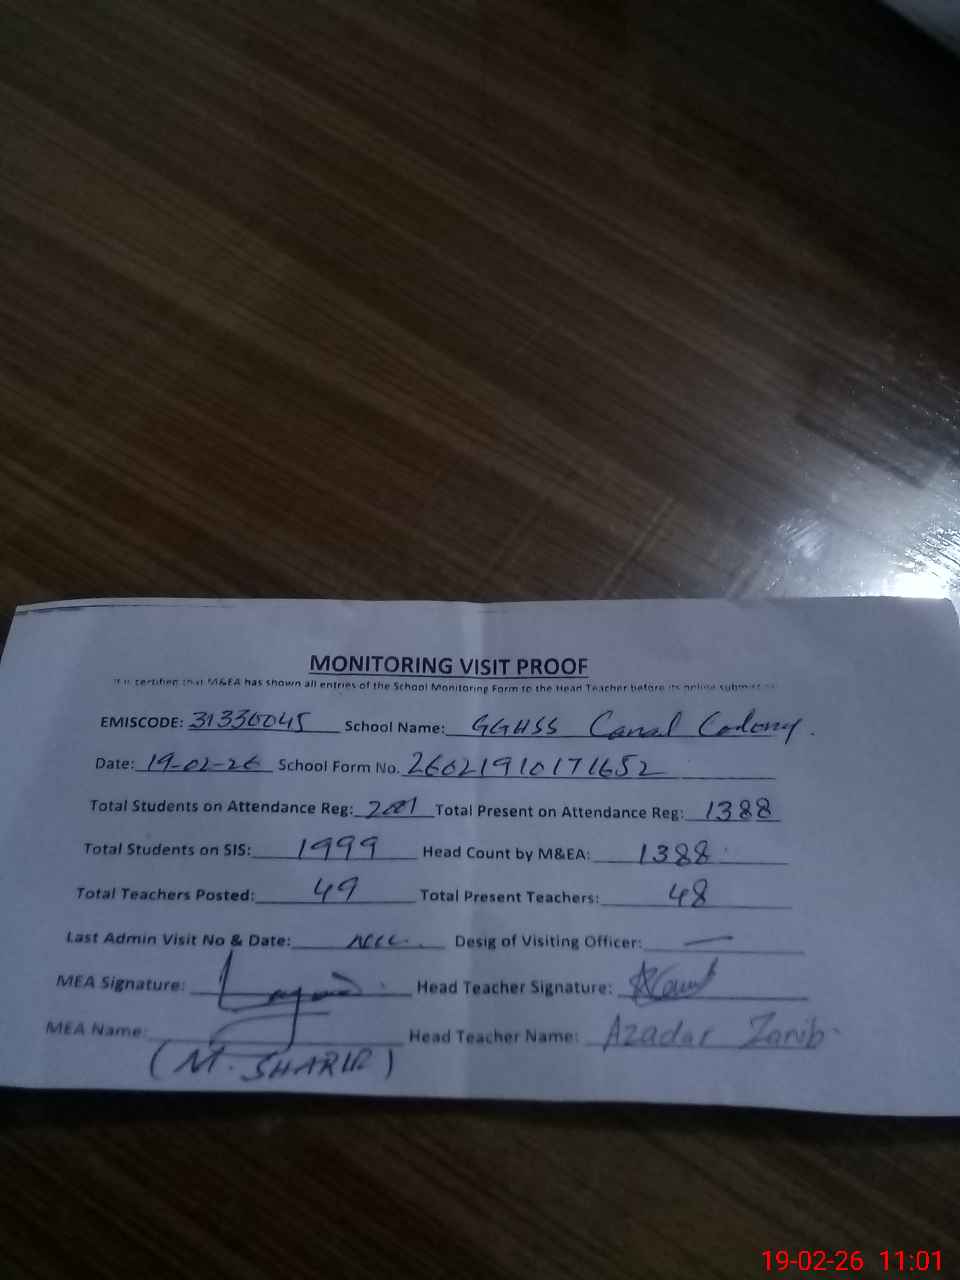 MONITORING VISIT PROOF
It is certified that M&EA has shown all entries of the School Monitoring Form to the Head Teacher before its online submission
EMISCODE: 31330045 School Name: GGHSS Canal Colony.
Date: 19-02-26 School Form No. 26021910171652
Total Students on Attendance Reg: Total Present on Attendance Reg: 1388
Total Students on SIS: 1999 Head Count by M&EA: 1388
Total Teachers Posted: 49 Total Present Teachers: 48
Last Admin Visit No & Date: Nil Desig of Visiting Officer: —
MEA Signature: Head Teacher Signature:
MEA Name: Head Teacher Name: Azadar Zanib
(M. SHARIF)
19-02-26 11:01